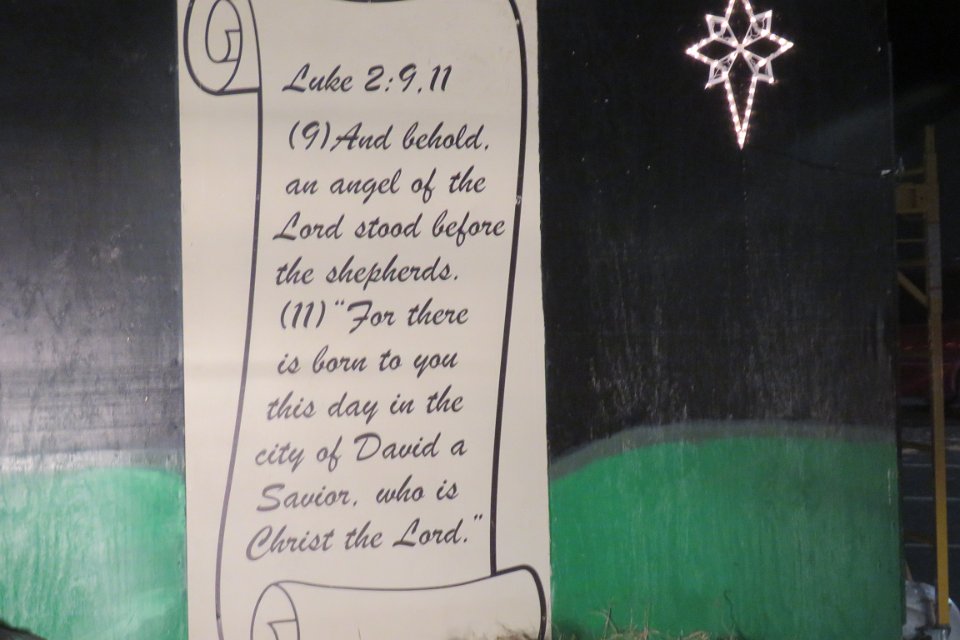 Luke 2:9,11
(9)And behold,
an angel of the
Lord stood before
the shepherds.
(11) "For there
is born to you
this day in the
city of David a
Savior, who is
Christ the Lord."